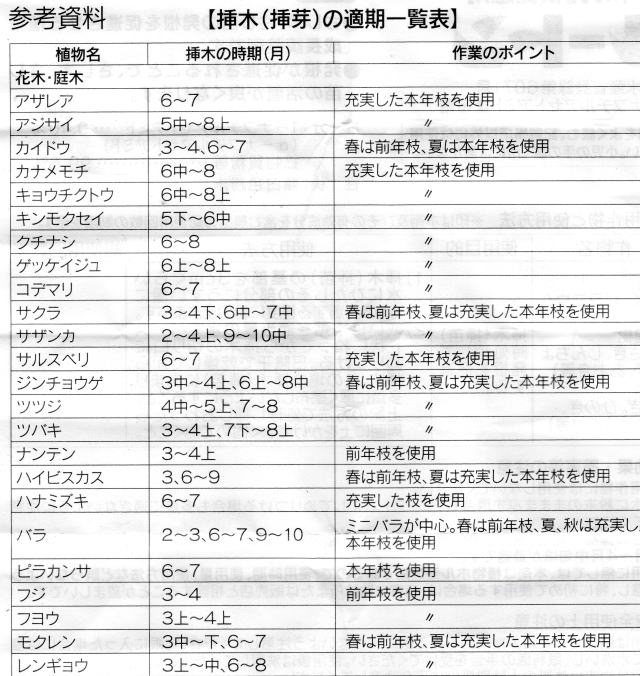 参考資料 【挿木(挿芽)の適期一覧表】
植物名 挿木の時期(月) 作業のポイント
花木・庭木
アザレア 6〜7 充実した本年枝を使用
アジサイ 5中〜8上 〃
カイドウ 3〜4、6〜7 春は前年枝、夏は本年枝を使用
カナメモチ 6中〜8 充実した本年枝を使用
キョウチクトウ 6中〜8上 〃
キンモクセイ 5下〜6中 〃
クチナシ 6〜8 〃
ゲッケイジュ 6上〜8上 〃
コデマリ 6〜7 〃
サクラ 3〜4下、6中〜7中 春は前年枝、夏は充実した本年枝を使用
サザンカ 2〜4上、9〜10中 〃
サルスベリ 6〜7 充実した本年枝を使用
ジンチョウゲ 3中〜4上、6上〜8中 春は前年枝、夏は充実した本年枝を使用
ツツジ 4中〜5上、7〜8 〃
ツバキ 3〜4上、7下〜8上 〃
ナンテン 3〜4上 前年枝を使用
ハイビスカス 3、6〜9 春は前年枝、夏は充実した本年枝を使用
ハナミズキ 6〜7 充実した枝を使用
バラ 2〜3、6〜7、9〜10 ミニバラが中心。春は前年枝、夏、秋は充実し
本年枝を使用
ピラカンサ 6〜7 本年枝を使用
フジ 3〜4 前年枝を使用
フヨウ 3上〜4上 〃
モクレン 3中〜下、6〜7 春は前年枝、夏は充実した本年枝を使用
レンギョウ 3上〜中、6〜8 〃